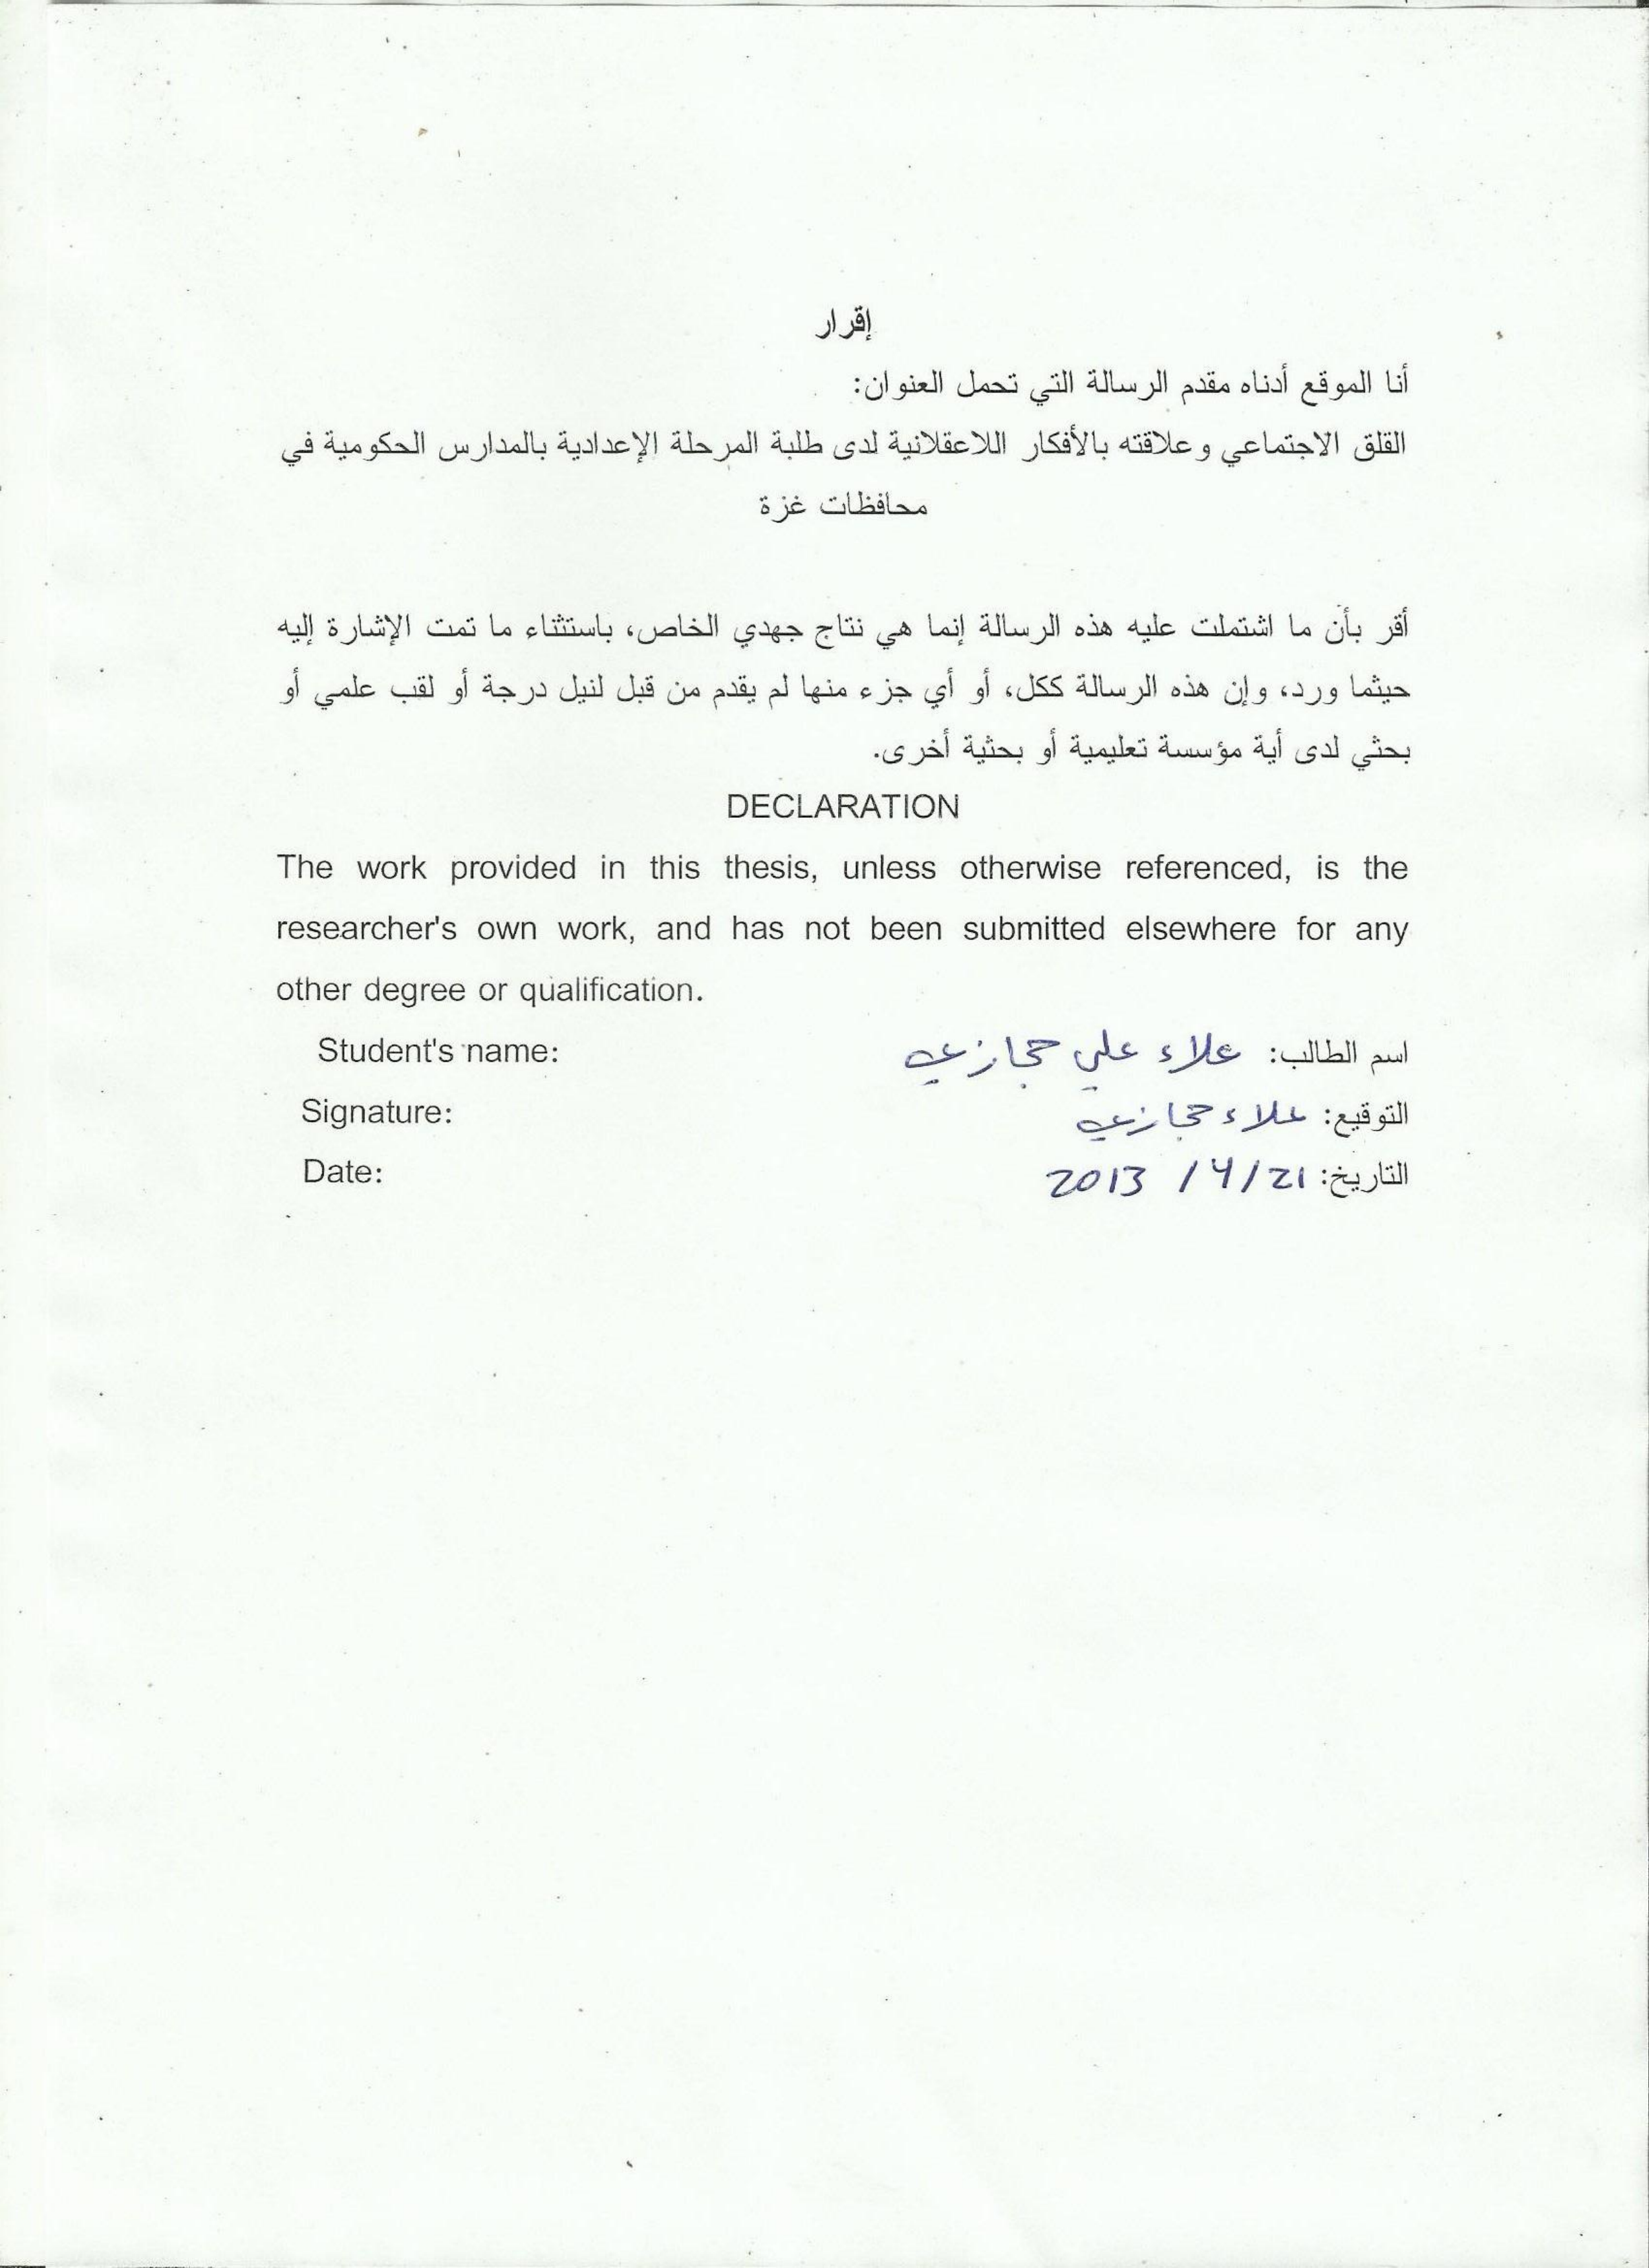 إقرار
أنا الموقع أدناه مقدم الرسالة التي تحمل العنوان:
القلق الاجتماعي وعلاقته بالأفكار اللاعقلانية لدى طلبة المرحلة الإعدادية بالمدارس الحكومية في
محافظات غزة
أقر بأن ما اشتملت عليه هذه الرسالة إنما هي نتاج جهدي الخاص، باستثناء ما تمت الإشارة إليه
حيثما ورد، وإن هذه الرسالة ككل، أو أي جزء منها لم يقدم من قبل لنيل درجة أو لقب علمي أو
بحثي لدى أية مؤسسة تعليمية أو بحثية أخرى.
DECLARATION
The work provided in this thesis, unless otherwise referenced, is the
researcher's own work, and has not been submitted elsewhere for any
other degree or qualification.
Student's name: اسم الطالب: علاء علي حجازي
Signature: التوقيع: علاء حجازي
Date: التاريخ: 21/4/2013